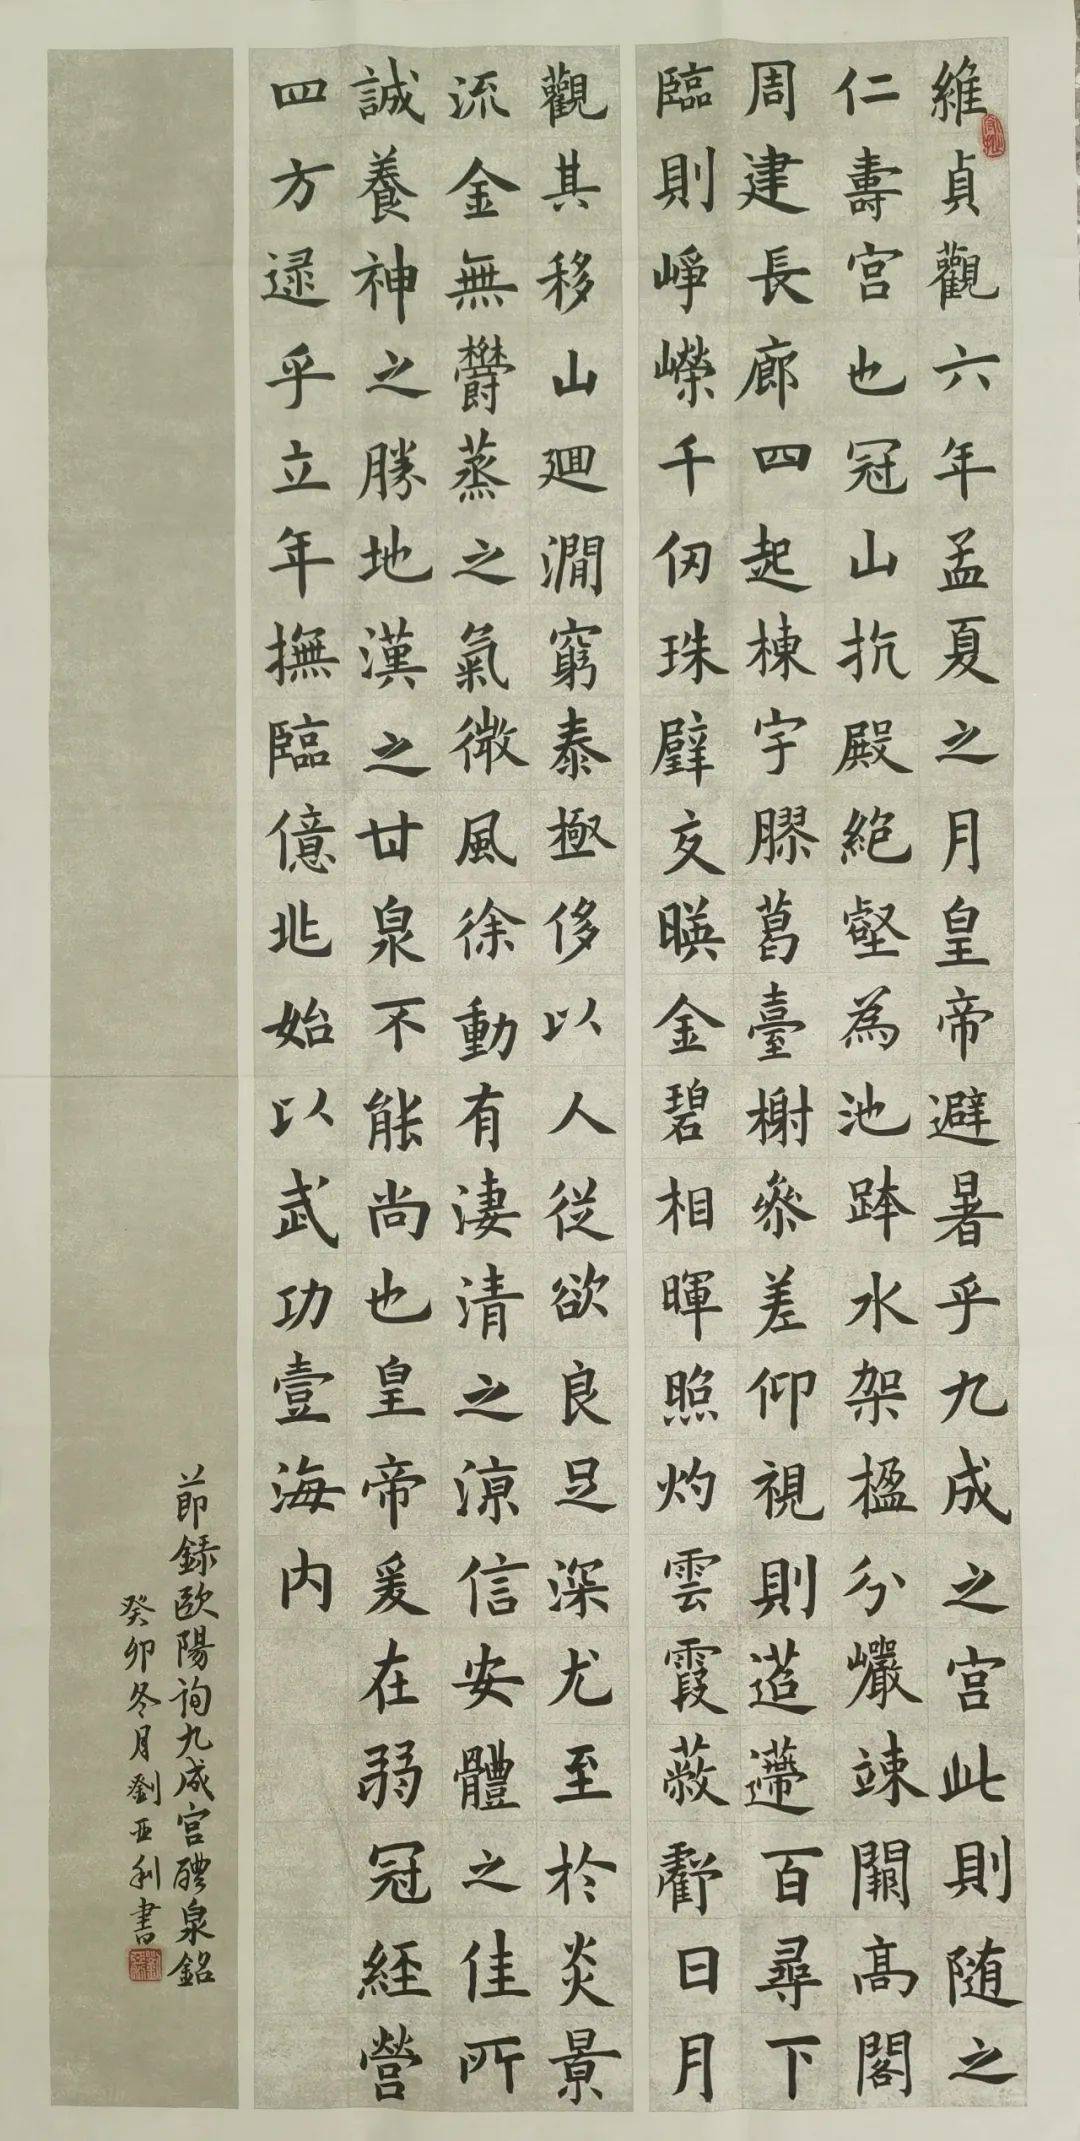 維貞觀六年孟夏之月皇帝避暑乎九成之宮此則随之
仁壽宮也冠山抗殿絕壑為池跨水架楹分巖竦闕高閣
周建長廊四起棟宇膠葛臺榭參差仰視則迢遰百尋下
臨則崢嶸千仞珠璧交暎金碧相暉照灼雲霞蔽虧日月
觀其移山廻澗窮泰極侈以人從欲良足深尤至於炎景
流金無欝蒸之氣微風徐動有淒清之涼信安體之佳所
誠養神之勝地漢之甘泉不能尚也皇帝爰在弱冠經營
四方逯乎立年撫臨億兆始以武功壹海内
節錄歐陽詢九成宮醴泉銘
癸卯冬月劉亞利書